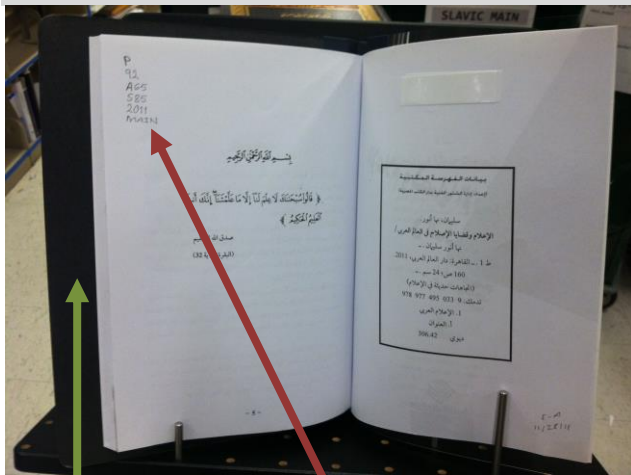 SLAVIC MAIN
P
92
A65
S85
2011
MAIN
بِسْمِ اللَّهِ الرَّحْمَٰنِ الرَّحِيمِ
﴿ قَالُوا سُبْحَانَكَ لَا عِلْمَ لَنَا إِلَّا مَا عَلَّمْتَنَا إِنَّكَ
الْعَلِيمُ الْحَكِيمُ ﴾
صدق الله
32)
بيانات الفهرسة المكتبية
سليمان، نها أنور
الإعلام وقضايا الإصلاح في العالم العربي /
نها أنور سليمان .-
ط 1 .- القاهرة: دار العالم العربي، 2011
160 ص؛ 24 سم .-
(اتجاهات حديثة في الإعلام)
تدمك: 9 033 495 977 978
1. الإعلام العربي
أ. العنوان
ديوي: 306.42